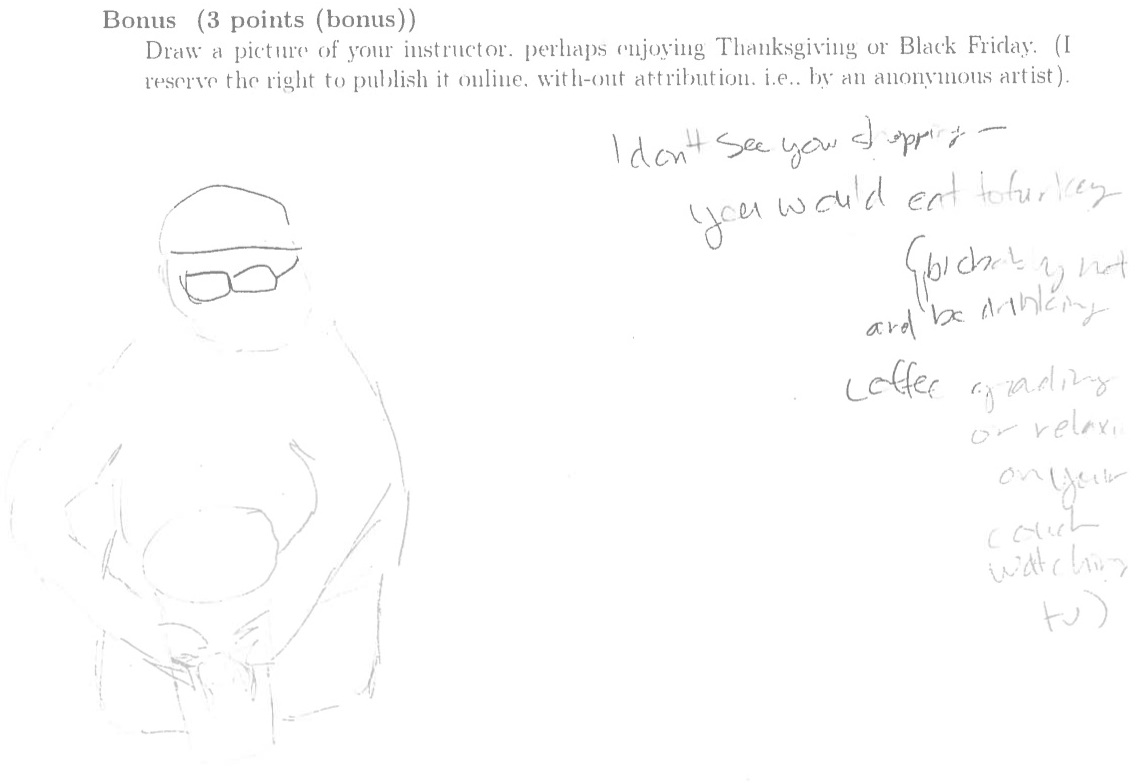 Bonus (3 points (bonus))
Draw a picture of your instructor, perhaps enjoying Thanksgiving or Black Friday. (I
reserve the right to publish it online, with-out attribution, i.e., by an anonymous artist).
I don't see you shopping —
you would eat tofurkey
(probably not
and be drinking
coffee grading
or relaxi
on your
couch
watching
tv)